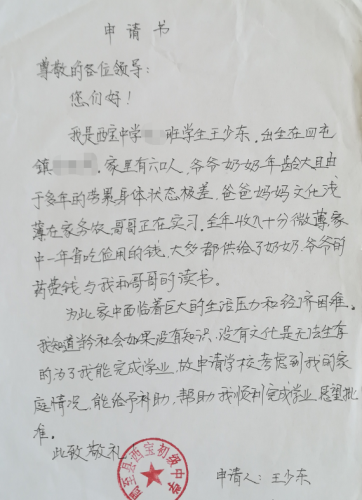 申请书
尊敬的各位领导：
您们好！
我是西宝中学班学生王少东，出生在四屯
镇，家里有六口人，爷爷奶奶年龄大且由
于多年的劳累身体状态极差，爸爸妈妈文化浅
薄在家务农，哥哥正在实习，全年收入十分微薄，家
中一年省吃俭用的钱，大多都供给了奶奶、爷爷的
药费钱与我和哥哥的读书。
为此家中面临着巨大的生活压力和经济困难。
我知道当今社会如果没有知识，没有文化是无法生存
的，为了我能完成学业，故申请学校考虑到我的家
庭情况，能给予补助，帮助我顺利完成学业，恳望批
准。
此致敬礼
周至县西宝初级中学
申请人：王少东